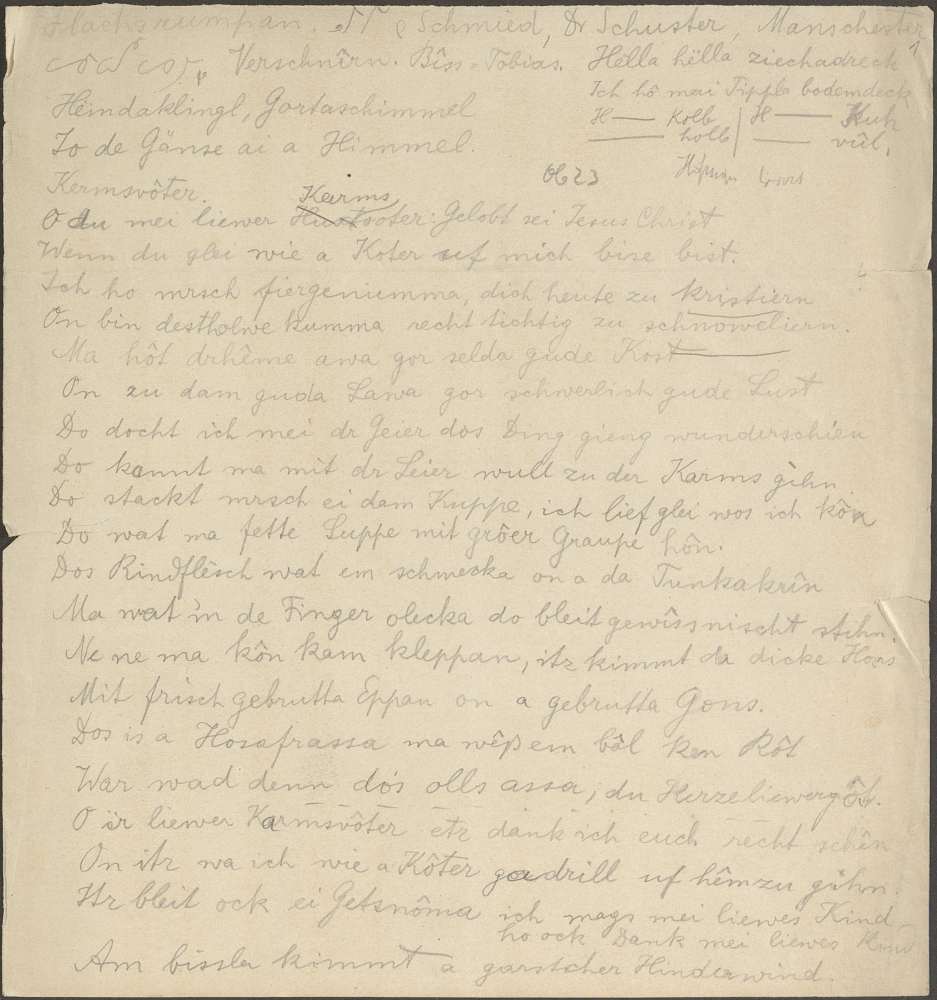 Schmied, Dr Schuster, Manschester
Verschnîrn. Bîss-Tobias. Hella hëlla ziechadreck
Ich hô mai Tippla bodemdeck
Heindaklingl, Gortaschimmel
H — Kolb | H — Kuh
— holb | — vûl.
Jo de Gänse ai a Himmel.
Ob 23
Kermsvôter.
Karms
O du mei liewer voter: Gelobt sei Jesus Christ
Wenn du glei wie a Koter uf mich bise bist.
Ich ho mrsch fiergeniumma, dich heute zu kristiern
On bin destholwe kumma recht tichtig zu schnoweliern.
Ma hôt drhême awa gor selda gude Kost
On zu dam guda Lawa gor schwerlich gude Lust
Do docht ich mei dr Geier dos Ding gieng wunderschien
Do kannt ma mit dr Leier wull zu der Karms gihn
Do stackt mrsch ei dam Kuppe, ich lief glei wos ich kôn
Do wat ma fette Suppe mit grôer Graupe hôn.
Dos Rindflêsch wat em schmecka on a da Tunkakrîn
Ma wat in de Finger olecka do bleit gewîss nischt stihn.
Ne ne ma kôn kam kleppan, itz kimmt da dicke Hons
Mit frisch gebrutta Eppan on a gebrutta Gons.
Dos is a Hosafrassa ma wêß em bôl ken Rôt
War wad denn dos olls assa, du Herzeliewergôt.
O ir liewer Karmsvôter etz dank ich euch recht schên
On itz wa ich wie a Kôter gadrill uf hêmzu gihn.
Itr bleit ock ei Getsnôma ich mags mei liewes Kind
ho ock Dank mei liewes Kind
Am bissla kimmt a garstcher Hinderwind.